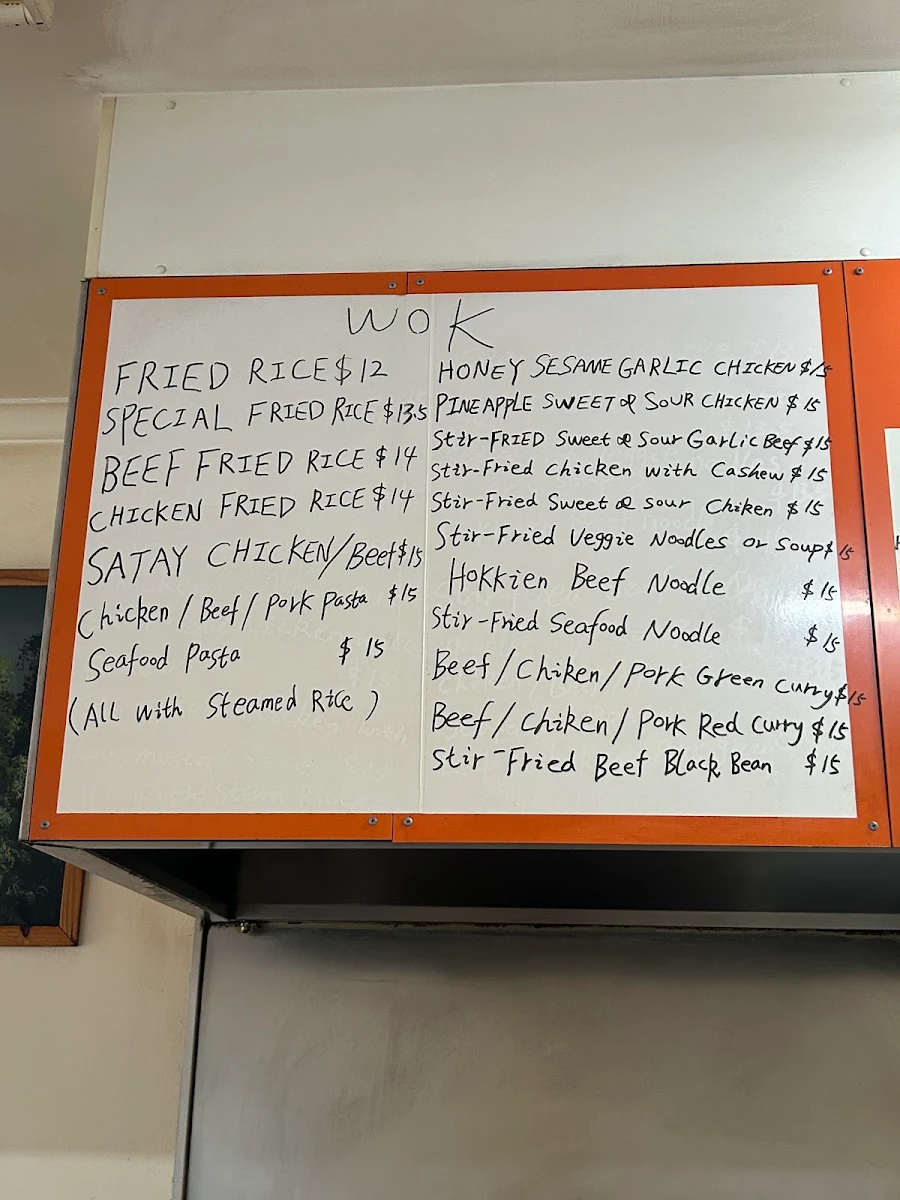 WOK
FRIED RICE $12
SPECIAL FRIED RICE $13.5
BEEF FRIED RICE $14
CHICKEN FRIED RICE $14
SATAY CHICKEN/Beef $15
Chicken / Beef / Pork Pasta $15
Seafood Pasta $15
(All with Steamed Rice)
HONEY SESAME GARLIC CHICKEN $15
PINEAPPLE SWEET & SOUR CHICKEN $15
Stir-FRIED Sweet & Sour Garlic Beef $15
Stir-Fried Chicken with Cashew $15
Stir-Fried Sweet & Sour Chiken $15
Stir-Fried Veggie Noodles or Soup $15
Hokkien Beef Noodle $15
Stir-Fried Seafood Noodle $15
Beef / Chiken / Pork Green Curry $15
Beef / Chiken / Pork Red Curry $15
Stir-Fried Beef Black Bean $15